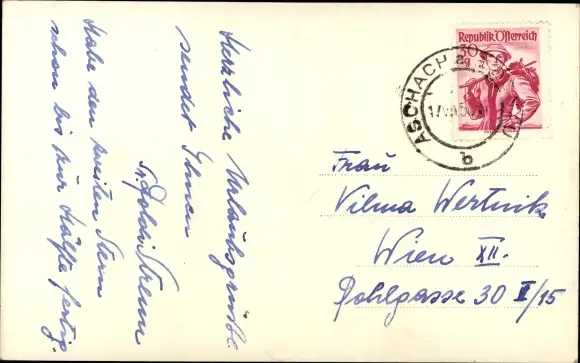 Herzliche Urlaubsgrüße
sendet Ihnen
Habe den zweiten Stern
schon bis zur Hälfte fertig.
Republik Österreich
30
g
ASCHACH a. d.
b
Frau
Vilma Wertnik
Wien XII.
Pohlgasse 30 II/15